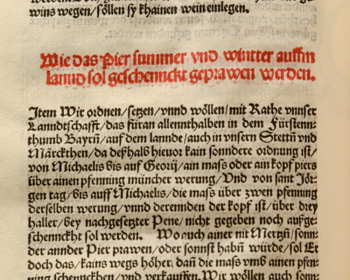 wins wegen/ söllen sy khainen wein einlegen.
Wie das Pier summer vnd winter auffm
lannd sol geschennckt geprawen werden.
Item Wir ordnen/ setzen/ vnnd wöllen/ mit Rathe vnnser
Lanndtschafft/ das füran allenthalben in dem Fürstenn-
thumb Bayrn/ auff dem lannde/ auch in vnsern Stettn vnd
Märckthen/ da deßhalb hieuor kain sonndere ordnung ist/
von Michaelis biß auff Georij/ ain mass oder ain kopf piers
über ainen pfenning müncher werung/ Vnd von sant Jör-
gen tag/ biß auff Michaelis/ die mass über zwen pfenning
derselben werung/ vnnd derennden der kopf ist/ über drey
haller/ bey nachgesetzter Pene/ nicht gegeben noch aufge-
schennckht sol werden. Wo auch ainer nit Mertzn/ sonn-
der annder Pier prawen/ oder sonnst habn würde/ sol Er
doch das/ kains wegs höher/ dann die mass vmb ainen pfen-
ning schenncken/ vnd verkauffen. Wir wöllen auch sonn-